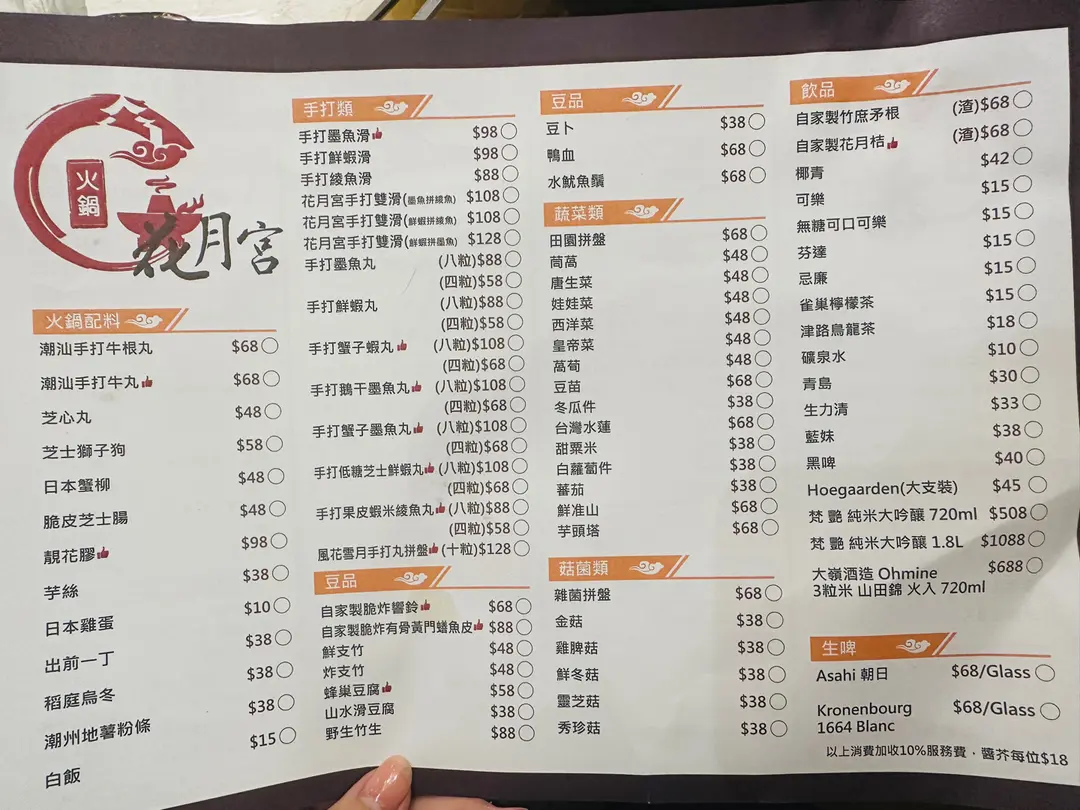 火鍋
花月宮
火鍋配料
潮汕手打牛根丸 $68
潮汕手打牛丸 $68
芝心丸 $48
芝士獅子狗 $58
日本蟹柳 $48
脆皮芝士腸 $48
靚花膠 $98
芋絲 $38
日本雞蛋 $10
出前一丁 $38
稻庭烏冬 $38
潮州地薯粉條 $38
白飯 $15
手打類
手打墨魚滑 $98
手打鮮蝦滑 $98
手打綾魚滑 $88
花月宮手打雙滑(墨魚拼綾魚) $108
花月宮手打雙滑(鮮蝦拼綾魚) $108
花月宮手打雙滑(鮮蝦拼墨魚) $128
手打墨魚丸 (八粒)$88
(四粒)$58
手打鮮蝦丸 (八粒)$88
(四粒)$58
手打蟹子蝦丸 (八粒)$108
(四粒)$68
手打鵝干墨魚丸 (八粒)$108
(四粒)$68
手打蟹子墨魚丸 (八粒)$108
(四粒)$68
手打低糖芝士鮮蝦丸 (八粒)$108
(四粒)$68
手打果皮蝦米綾魚丸 (八粒)$88
(四粒)$58
風花雪月手打丸拼盤 (十粒)$128
豆品
自家製脆炸響鈴 $68
自家製脆炸有骨黃門鱔魚皮 $88
鮮支竹 $48
炸支竹 $48
蜂巢豆腐 $58
山水滑豆腐 $38
野生竹生 $88
豆品
豆卜 $38
鴨血 $68
水魷魚鬚 $68
蔬菜類
田園拼盤 $68
茼萵 $48
唐生菜 $48
娃娃菜 $48
西洋菜 $48
皇帝菜 $48
萵筍 $48
豆苗 $68
冬瓜件 $38
台灣水蓮 $68
甜粟米 $38
白蘿蔔件 $38
蕃茄 $38
鮮准山 $68
芋頭塔 $68
菇菌類
雜菌拼盤 $68
金菇 $38
雞脾菇 $38
鮮冬菇 $38
靈芝菇 $38
秀珍菇 $38
飲品
自家製竹庶矛根 (渣)$68
自家製花月桔 (渣)$68
椰青 $42
可樂 $15
無糖可口可樂 $15
芬達 $15
忌廉 $15
雀巢檸檬茶 $15
津路烏龍茶 $18
礦泉水 $10
青島 $30
生力清 $33
藍妹 $38
黑啤 $40
Hoegaarden(大支裝) $45
梵 艷 純米大吟釀 720ml $508
梵 艷 純米大吟釀 1.8L $1088
大嶺酒造 Ohmine $688
3粒米 山田錦 火入 720ml
生啤
Asahi 朝日 $68/Glass
Kronenbourg $68/Glass
1664 Blanc
以上消費加收10%服務費，醬芥每位$18